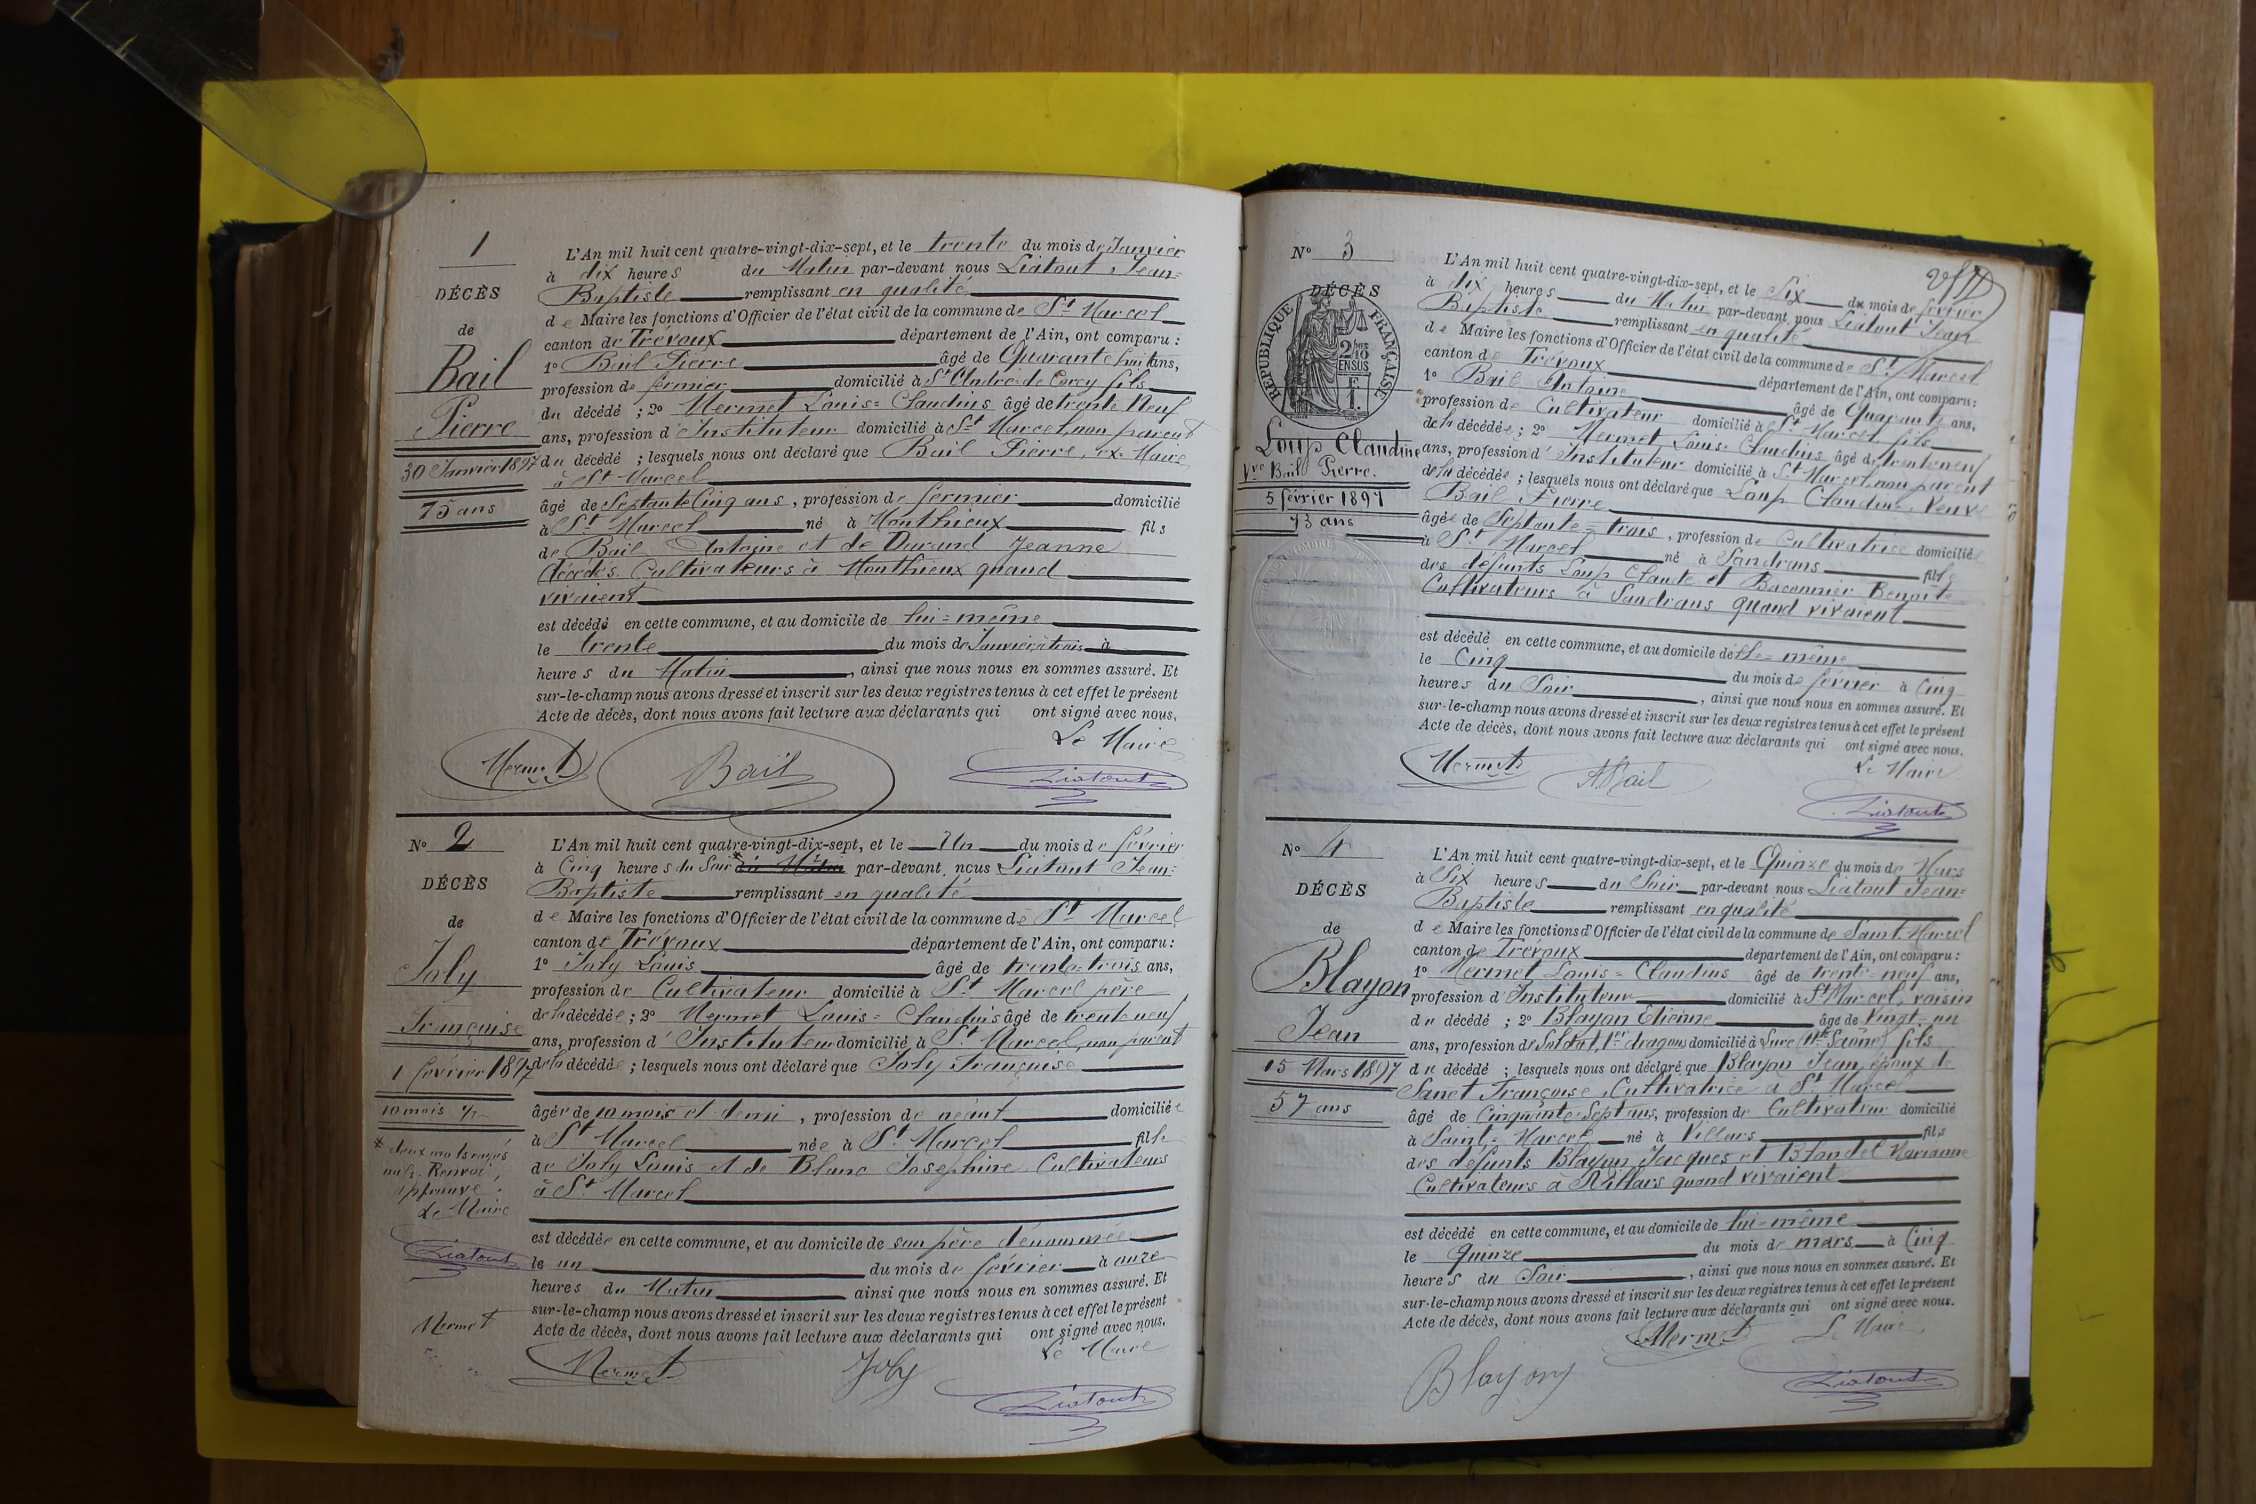 1
DÉCÈS
de
Bail
Pierre
30 Janvier 1897
75 ans
L'An mil huit cent quatre-vingt-dix-sept, et le trente du mois de Janvier
à dix heures du Matin par-devant nous Liatout Jean=
Baptiste remplissant en qualité
de Maire les fonctions d'Officier de l'état civil de la commune de St Marcel
canton de Trévoux département de l'Ain, ont comparu :
1º Bail Pierre âgé de Quarante huit ans,
profession de fermier domicilié à St André de Corcy fils
du décédé ; 2º Mermet Louis=Claudius âgé de trente Neuf
ans, profession d'Instituteur domicilié à St Marcel, non parent
du décédé ; lesquels nous ont déclaré que Bail Pierre, ex-Maire
à St Marcel
âgé de Septante Cinq ans, profession de fermier domicilié
à St Marcel né à Monthieux fils
de Bail Antoine et de Durand Jeanne
décédés Cultivateurs à Monthieux quand
vivaient
est décédé en cette commune, et au domicile de lui=même
le trente du mois de Janvier à trois à
heures du Matin, ainsi que nous nous en sommes assuré. Et
sur-le-champ nous avons dressé et inscrit sur les deux registres tenus à cet effet le présent
Acte de décès, dont nous avons fait lecture aux déclarants qui ont signé avec nous.
Le Maire
Mermet Bail Liatout
Nº 2
DÉCÈS
de
Joly
Françoise
1 février 1897
10 mois 1/2
* deux mots rayés
nuls. Renvoi
approuvé.
Le Maire
Liatout
Mermet
L'An mil huit cent quatre-vingt-dix-sept, et le Un du mois de février
à Cinq heures du Soir * du Matin par-devant nous Liatout Jean=
Baptiste remplissant en qualité
de Maire les fonctions d'Officier de l'état civil de la commune de St Marcel
canton de Trévoux département de l'Ain, ont comparu :
1º Joly Louis âgé de trente=trois ans,
profession de Cultivateur domicilié à St Marcel père
de la décédée ; 2º Mermet Louis=Claudius âgé de trente neuf
ans, profession d'Instituteur domicilié à St Marcel, non parent
de la décédée ; lesquels nous ont déclaré que Joly Françoise
âgée de 10 mois et demi, profession de néant domiciliée
à St Marcel née à St Marcel fille
de Joly Louis et de Blanc Josephine Cultivateurs
à St Marcel
est décédée en cette commune, et au domicile de son père dénommée
le un du mois de février à onze
heures du Matin ainsi que nous nous en sommes assuré. Et
sur-le-champ nous avons dressé et inscrit sur les deux registres tenus à cet effet le présent
Acte de décès, dont nous avons fait lecture aux déclarants qui ont signé avec nous.
Le Maire
Mermet Joly Liatout
Nº 3
DÉCÈS
RÉPUBLIQUE FRANÇAISE
2/10 EN SUS
Loup Claudine
Vve Bail Pierre.
5 février 1897
73 ans
L'An mil huit cent quatre-vingt-dix-sept, et le Six du mois de février
à dix heures du Matin par-devant nous Liatout Jean
Baptiste remplissant en qualité
de Maire les fonctions d'Officier de l'état civil de la commune de St Marcel
canton de Trévoux département de l'Ain, ont comparu :
1º Bail Antoine âgé de Quarante ans,
profession de Cultivateur domicilié à St Marcel, fils
de la décédée ; 2º Mermet Louis Claudius âgé de trente neuf
ans, profession d'Instituteur domicilié à St Marcel, non parent
de la décédée ; lesquels nous ont déclaré que Loup Claudine, Veuve
Bail Pierre
âgée de Septante=trois, profession de Cultivatrice domiciliée
à St Marcel né à Sandrans fille
des défunts Loup Claude et Baconnier Benoite
Cultivateurs à Sandrans quand vivaient
est décédé en cette commune, et au domicile de Elle=même
le Cinq du mois de février à Cinq
heures du Soir, ainsi que nous nous en sommes assuré. Et
sur-le-champ nous avons dressé et inscrit sur les deux registres tenus à cet effet le présent
Acte de décès, dont nous avons fait lecture aux déclarants qui ont signé avec nous.
Le Maire
Mermet ABail Liatout
Nº 4
DÉCÈS
de
Blayon
Jean
15 Mars 1897
57 ans
L'An mil huit cent quatre-vingt-dix-sept, et le Quinze du mois de Mars
à Six heures du Soir par-devant nous Liatout Jean=
Baptiste remplissant en qualité
de Maire les fonctions d'Officier de l'état civil de la commune de Saint Marcel
canton de Trévoux département de l'Ain, ont comparu :
1º Mermet Louis=Claudius âgé de trente-neuf ans,
profession d'Instituteur domicilié à St Marcel, voisin
du décédé ; 2º Blayon Etienne âgé de Vingt-un
ans, profession de Soldat, 1er dragons domicilié à Lure (Hte Saône) fils
du décédé ; lesquels nous ont déclaré que Blayon Jean, époux de
Sanet Françoise, Cultivatrice à St Marcel
âgé de Cinquante-Sept ans, profession de Cultivateur domicilié
à Saint=Marcel né à Villars fils
des défunts Blayon Jacques et Blondel Marianne
Cultivateurs à Villars quand vivaient
est décédé en cette commune, et au domicile de lui-même
le Quinze du mois de mars à Cinq
heures du Soir, ainsi que nous nous en sommes assuré. Et
sur-le-champ nous avons dressé et inscrit sur les deux registres tenus à cet effet le présent
Acte de décès, dont nous avons fait lecture aux déclarants qui ont signé avec nous.
Mermet Le Maire
Blayon Liatout